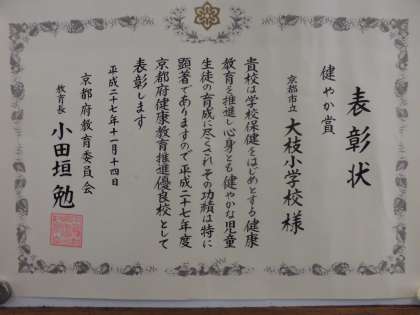 表彰状
健やか賞
京都市立 大枝小学校様
貴校は学校保健をはじめとする健康
教育を推進し心身とも健やかな児童
生徒の育成に尽くされその功績は特に
顕著でありますので平成二十七年度
京都府健康教育推進優良校として
表彰します
平成二十七年十一月十四日
京都府教育委員会
教育長 小田垣勉